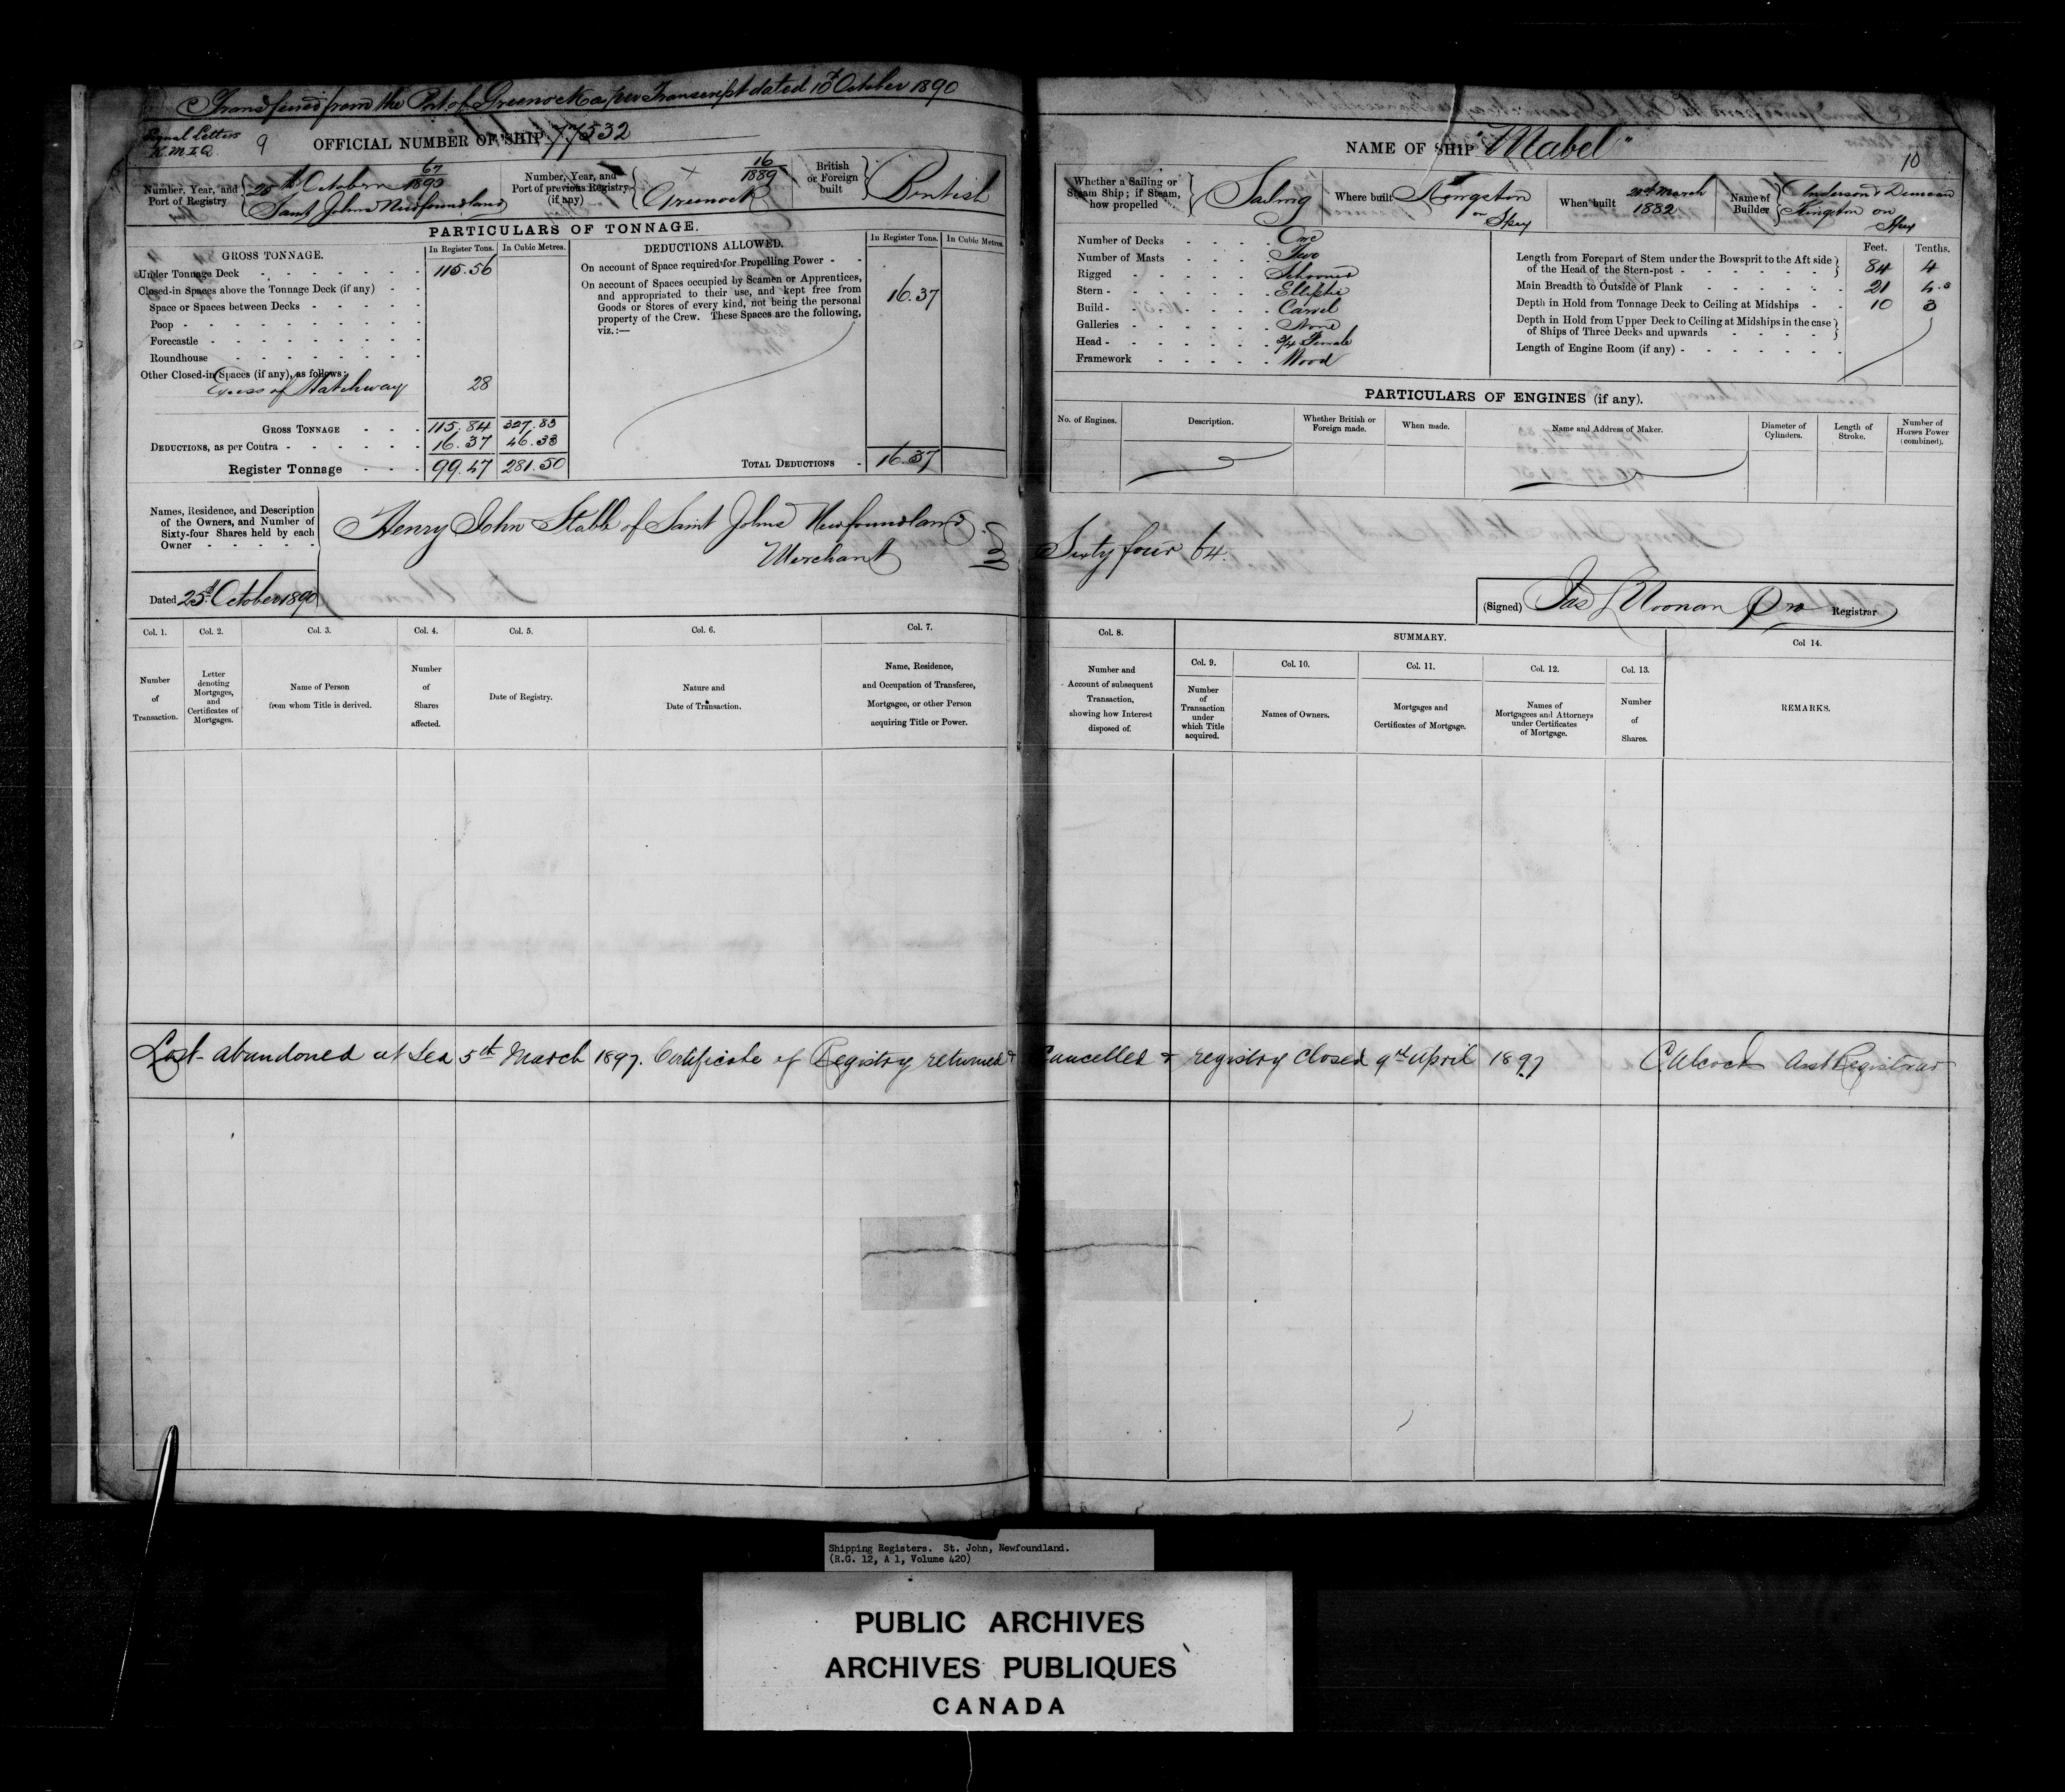 Transferred from the Port of Greenock as per Transcript dated 10th October 1890
Signal Letters
9
OFFICIAL NUMBER OF SHIP 77532
Number, Year, and
Port of Registry
67
1890
25th October
Saint Johns Newfoundland
Number, Year, and
Port of previous Registry
(if any)
16
1889
Greenock
British
or Foreign
built
British
PARTICULARS OF TONNAGE.
GROSS TONNAGE.
In Register Tons.
In Cubic Metres.
Under Tonnage Deck 115.56
Closed-in Spaces above the Tonnage Deck (if any)
Space or Spaces between Decks
Poop
Forecastle
Roundhouse
Other Closed-in Spaces (if any), as follows:
Excess of Hatchway 28
GROSS TONNAGE 115.84 327.83
DEDUCTIONS, as per Contra 16.37 46.33
Register Tonnage 99.47 281.50
DEDUCTIONS ALLOWED.
In Register Tons.
In Cubic Metres.
On account of Space required for Propelling Power
On account of Spaces occupied by Seamen or Apprentices,
and appropriated to their use, and kept free from
Goods or Stores of every kind, not being the personal
property of the Crew. These Spaces are the following,
viz.:—
16.37
TOTAL DEDUCTIONS 16.37
Names, Residence, and Description
of the Owners, and Number of
Sixty-four Shares held by each
Owner
Henry John Stabb of Saint Johns Newfoundland
Merchant
Dated 25th October 1890
Col. 1.
Number
of
Transaction.
Col. 2.
Letter
denoting
Mortgages,
and
Certificates of
Mortgages.
Col. 3.
Name of Person
from whom Title is derived.
Col. 4.
Number
of
Shares
affected.
Col. 5.
Date of Registry.
Col. 6.
Nature and
Date of Transaction.
Col. 7.
Name, Residence,
and Occupation of Transferee,
Mortgagee, or other Person
acquiring Title or Power.
NAME OF SHIP "Mabel"
10
Whether a Sailing or
Steam Ship; if Steam,
how propelled
Sailing
Where built
Kingston
on
Spey
When built
20th March
1882
Name of
Builder
Anderson & Duncan
Kingston on
Spey
Number of Decks One
Number of Masts Two
Rigged Schooner
Stern Elliptic
Build Carvel
Galleries None
Head 3/4 Female
Framework Wood
Feet. Tenths.
Length from Forepart of Stem under the Bowsprit to the Aft side
of the Head of the Stern-post 84 4
Main Breadth to Outside of Plank 21 4.5
Depth in Hold from Tonnage Deck to Ceiling at Midships 10 3
Depth in Hold from Upper Deck to Ceiling at Midships in the case
of Ships of Three Decks and upwards
Length of Engine Room (if any)
PARTICULARS OF ENGINES (if any).
No. of Engines.
Description.
Whether British or
Foreign made.
When made.
Name and Address of Maker.
Diameter of
Cylinders.
Length of
Stroke.
Number of
Horses Power
(combined).
Sixty four 64.
(Signed) Jas L Noonan Pro Registrar
Col. 8.
Number and
Account of subsequent
Transaction,
showing how Interest
disposed of.
SUMMARY.
Col. 9.
Number
of
Transaction
under
which Title
acquired.
Col. 10.
Names of Owners.
Col. 11.
Mortgages and
Certificates of Mortgage.
Col. 12.
Names of
Mortgagees and Attorneys
under Certificates
of Mortgage.
Col. 13.
Number
of
Shares.
Col 14.
REMARKS.
Lost - abandoned at Sea 5th March 1897. Certificate of Registry returned & Cancelled & registry closed 9th April 1897 C Alcock Asst Registrar
Shipping Registers. St. John, Newfoundland.
(R.G. 12, A 1, Volume 420)
PUBLIC ARCHIVES
ARCHIVES PUBLIQUES
CANADA